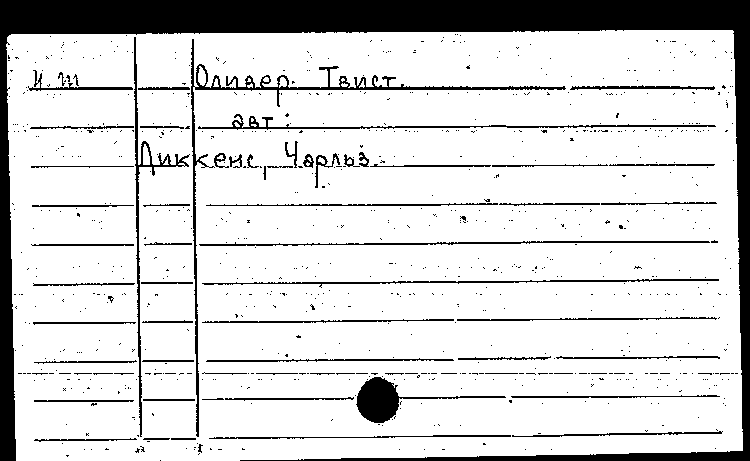 и. т Оливер. Твист.
авт:
Диккенс, Чарльз.